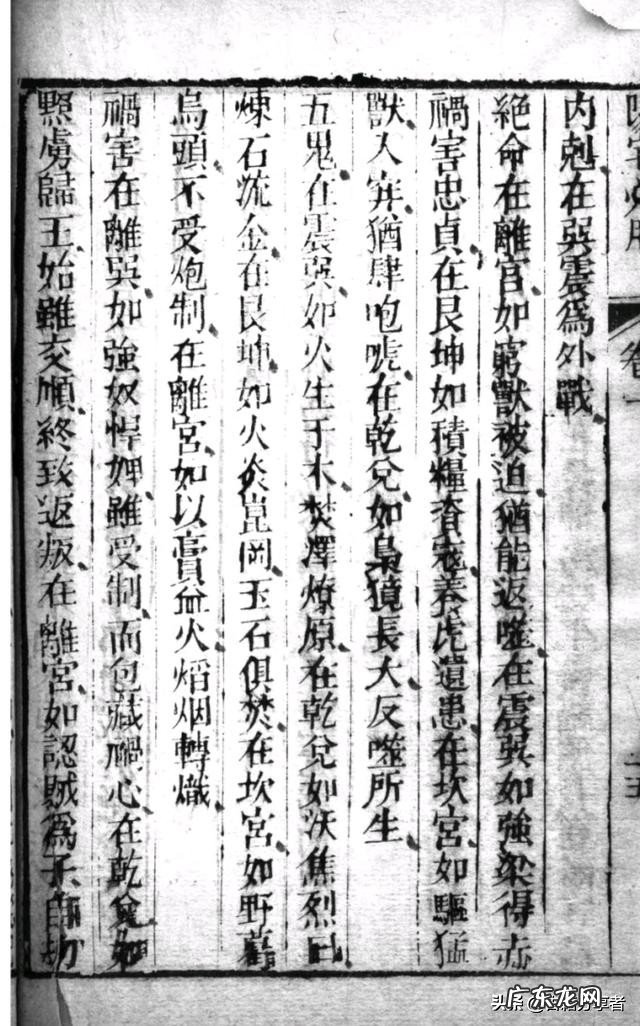 卷一
內剋在巽震為外戰
絕命在離宮如窮獸被迫猶能返噬在震巽如強梁得赤
禍害忠貞在艮坤如積糧賫寇養虎遺患在坎宮如驅猛
獸入穽猶肆咆唬在乾兌如梟獍長大反噬所生
五鬼在震巽如火生于木焚澤燎原在乾兌如沃焦烈
煉石流金在艮坤如火炎崑岡玉石俱焚在坎宮如野葛
烏頭不受炮制在離宮如以膏益火熖烟轉熾
禍害在離巽如強奴悍婢雖受制而包藏禍心在乾兌如
黥虜歸王始雖交順終致返叛在離宮如認賊為子自劫
头条
广东龙网
享者